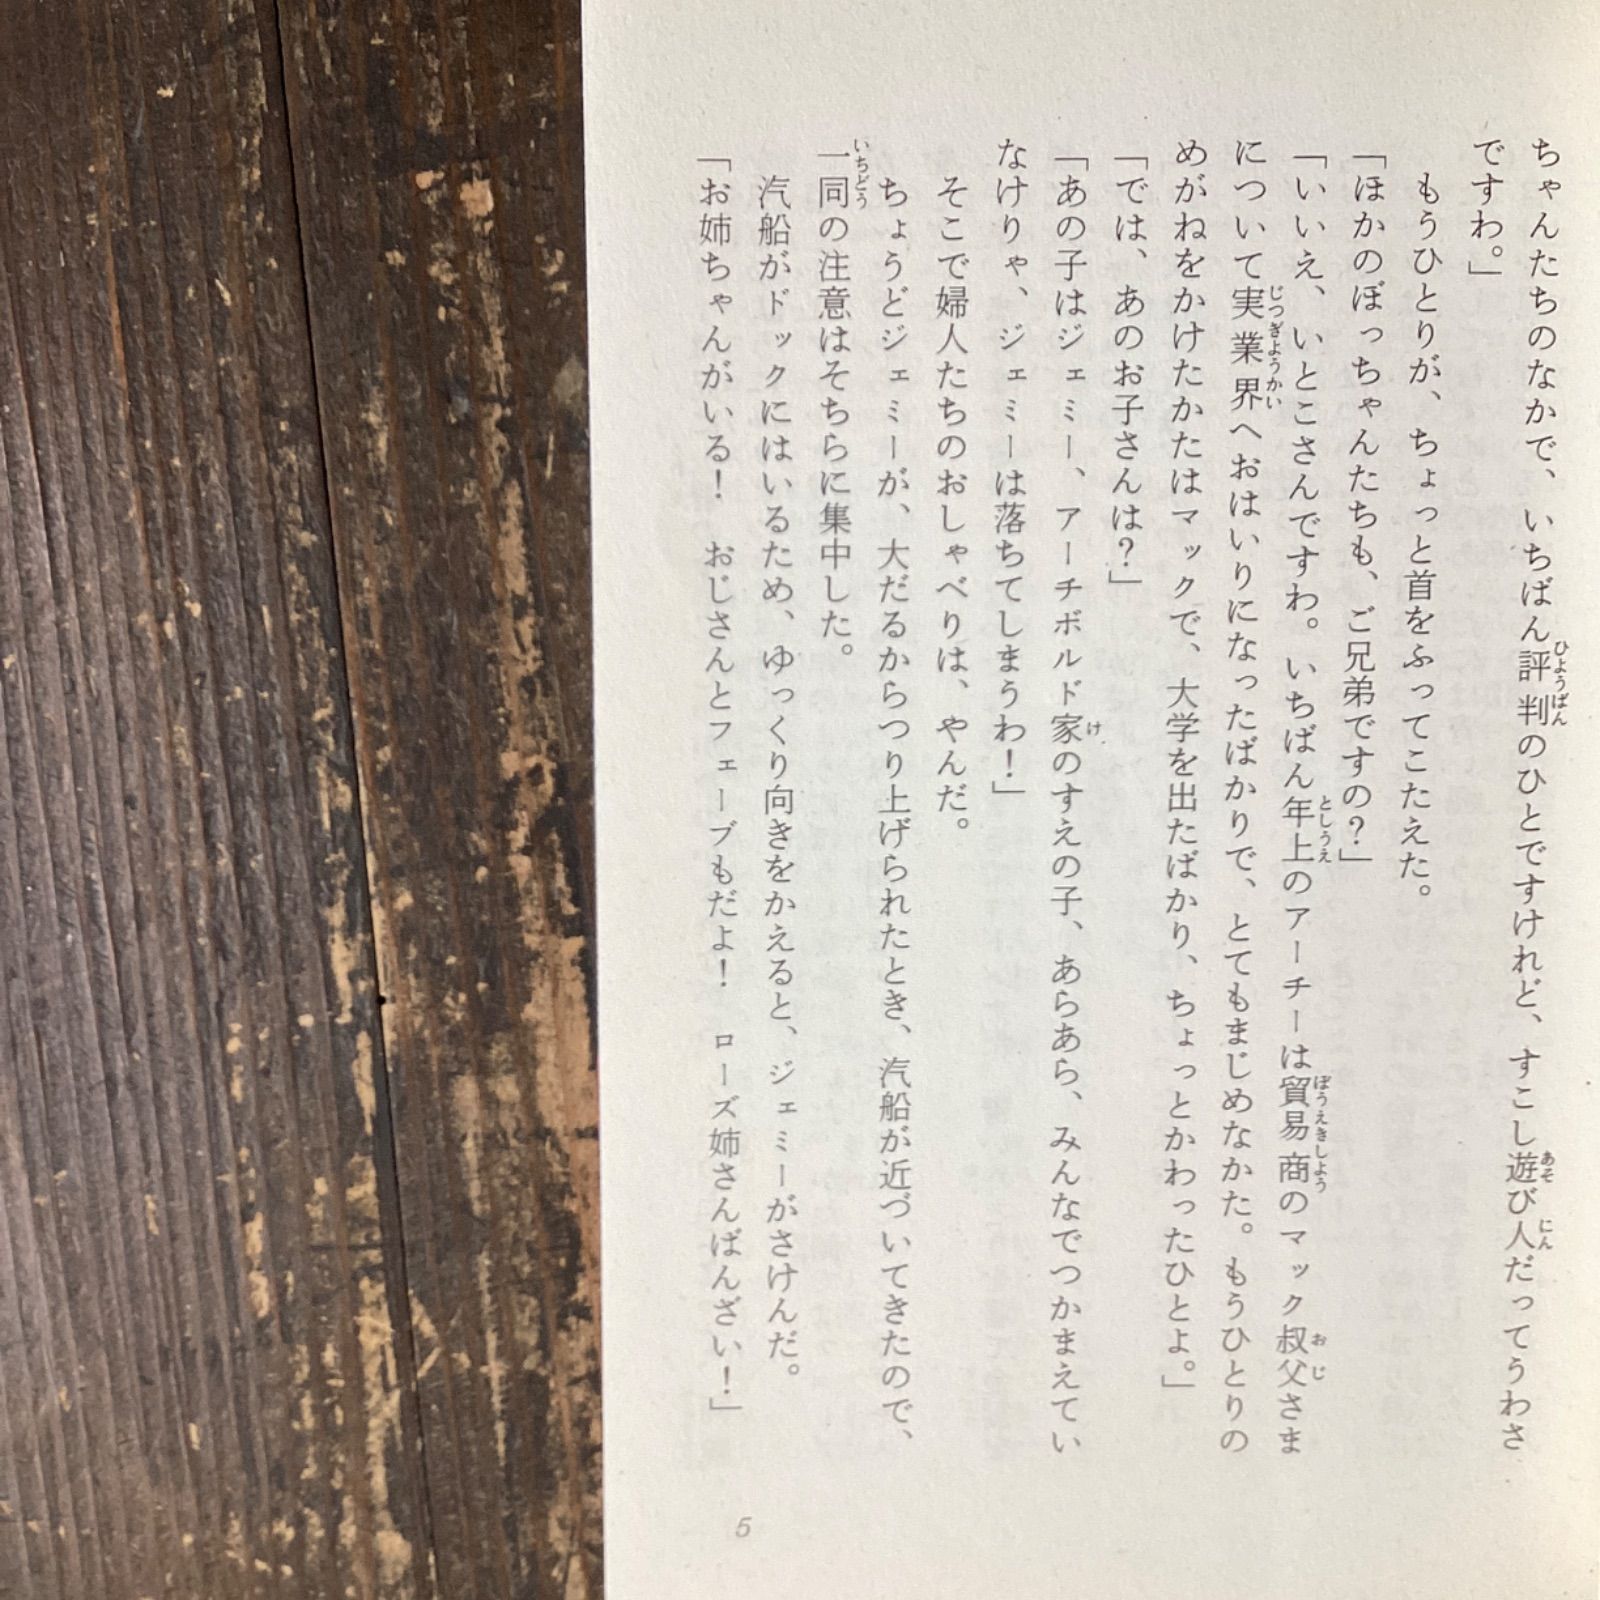 ちゃんたちのなかで、いちばん評判のひとですけれど、すこし遊び人だってうわさ
ですわ。」
もうひとりが、ちょっと首をふってこたえた。
「ほかのぼっちゃんたちも、ご兄弟ですの?」
「いいえ、いとこさんですわ。いちばん年上のアーチーは貿易商のマック叔父さま
について実業界へおはいりになったばかりで、とてもまじめなかた。もうひとりの
めがねをかけたかたはマックで、大学を出たばかり、ちょっとかわったひとよ。」
「では、あのお子さんは?」
「あの子はジェミー、アーチボルド家のすえの子、あらあら、みんなでつかまえてい
なけりゃ、ジェミーは落ちてしまうわ!」
そこで婦人たちのおしゃべりは、やんだ。
ちょうどジェミーが、大だるからつり上げられたとき、汽船が近づいてきたので、
一同の注意はそちらに集中した。
汽船がドックにはいるため、ゆっくり向きをかえると、ジェミーがさけんだ。
「お姉ちゃんがいる! おじさんとフェーブもだよ! ローズ姉さんばんざい!」
5